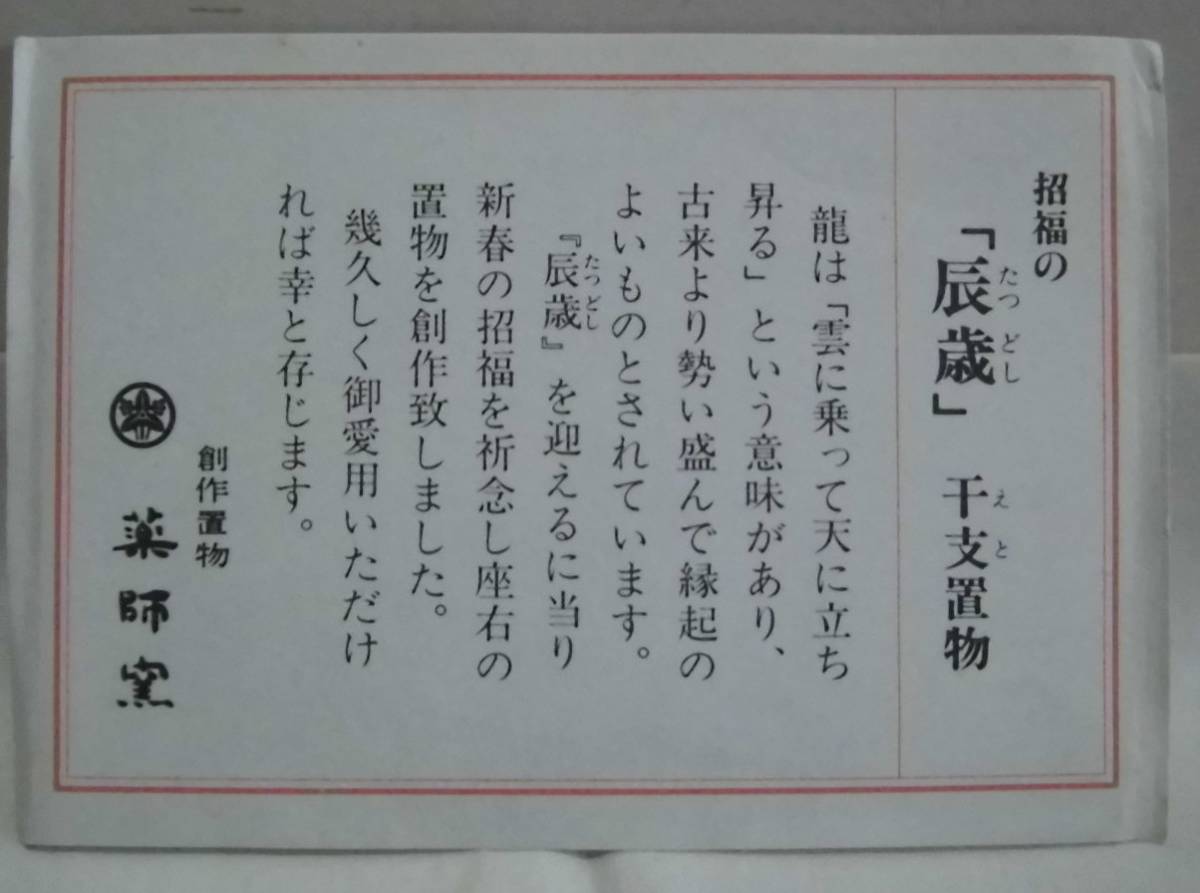 招福の
「辰歳」 干支置物
たつどし
えと
龍は「雲に乗って天に立ち
昇る」という意味があり、
古来より勢い盛んで縁起の
よいものとされています。
『辰歳』を迎えるに当り
たつどし
新春の招福を祈念し座右の
置物を創作致しました。
幾久しく御愛用いただけ
れば幸と存じます。
創作置物
薬師窯